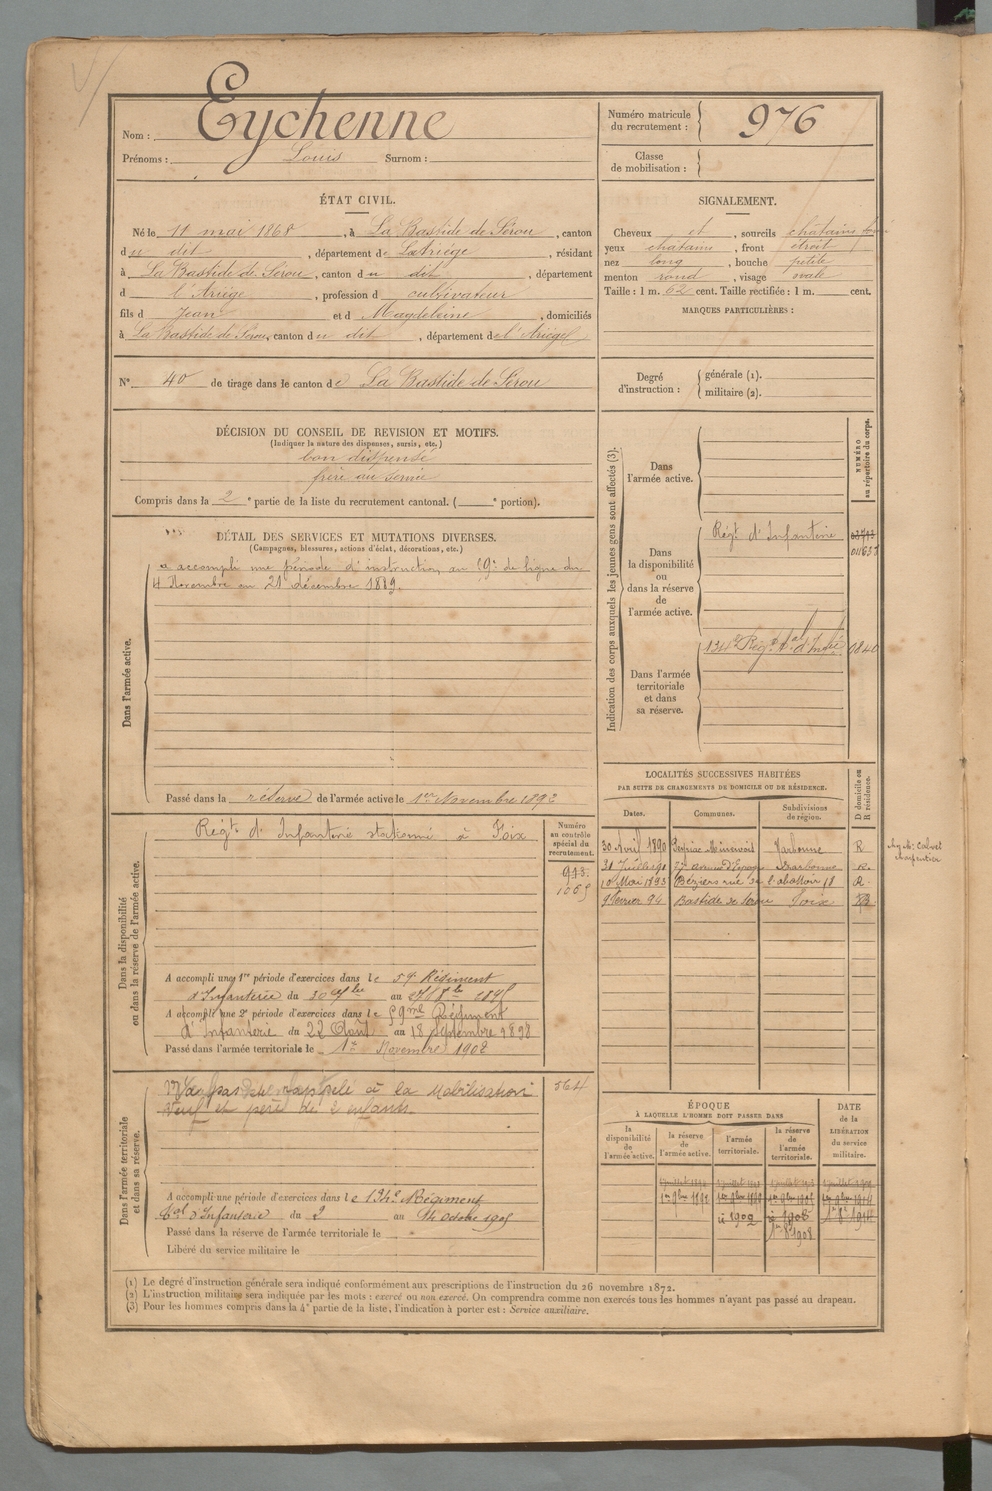 Nom : Eychenne
Prénoms : Louis Surnom :
Numéro matricule du recrutement : 976
Classe de mobilisation :
ÉTAT CIVIL.
Né le 11 mai 1868, à La Bastide de Sérou, canton
du dit, département de L'Ariége, résidant
à La Bastide de Sérou, canton du dit, département
d l'Ariége, profession d cultivateur
fils d Jean et d Magdeleine, domiciliés
à La Bastide de Sérou, canton du dit, département de l'Ariége
N° 40 de tirage dans le canton de La Bastide de Sérou
SIGNALEMENT.
Cheveux et, sourcils chatains
yeux chatains, front étroit
nez long, bouche petite
menton rond, visage ovale
Taille : 1 m. 62 cent. Taille rectifiée : 1 m. cent.
MARQUES PARTICULIÈRES :
Degré d'instruction : générale (1).
militaire (2).
DÉCISION DU CONSEIL DE REVISION ET MOTIFS.
(Indiquer la nature des dispenses, sursis, etc.)
bon dispensé
frère au service
Compris dans la 2e partie de la liste du recrutement cantonal. ( e portion).
DÉTAIL DES SERVICES ET MUTATIONS DIVERSES.
(Campagnes, blessures, actions d'éclat, décorations, etc.)
Dans l'armée active.
a accompli une période d'instruction au 59e de ligne du
4 Novembre au 21 décembre 1889.
Passé dans la réserve de l'armée active le 1er Novembre 1892
Dans la disponibilité
ou dans la réserve de l'armée active.
Régt d'Infanterie stationné à Foix
Numéro
au contrôle
spécial du
recrutement.
943.
A accompli une 1re période d'exercices dans le 59e Régiment
d'Infanterie du 30 au
A accompli une 2e période d'exercices dans le 59me Régiment
d'Infanterie du 22 Août au 18 septembre 1898
Passé dans l'armée territoriale le 1er Novembre 1902
Dans l'armée territoriale
et dans sa réserve.
N'a pas été rappelé à la Mobilisation
Veuf et père de 2 enfants.
564
A accompli une période d'exercices dans le 134e Régiment
tal d'Infanterie du 2 au 14 Octobre 1905
Passé dans la réserve de l'armée territoriale le
Libéré du service militaire le
Indication des corps auxquels les jeunes gens sont affectés (3).
NUMÉRO
au répertoire du corps.
Dans
l'armée active.
Dans
la disponibilité
ou
dans la réserve
de
l'armée active.
Régt d'Infanterie
Dans l'armée
territoriale
et dans
sa réserve.
134e Régt tal d'Infie
LOCALITÉS SUCCESSIVES HABITÉES
PAR SUITE DE CHANGEMENTS DE DOMICILE OU DE RÉSIDENCE.
D domicile ou
R résidence.
Dates. Communes. Subdivisions de région.
30 Avril 1890 Peyriac Minervois Narbonne R
Narbonne R.
10 Mai 1893 Béziers rue de l'abattoir 18 R.
9 février 94 Bastide de Sérou Foix
chez M. Calvet
charpentier
ÉPOQUE
À LAQUELLE L'HOMME DOIT PASSER DANS
DATE
de la
LIBÉRATION
du service
militaire.
la
disponibilité
de
l'armée active.
la réserve
de
l'armée active.
l'armée
territoriale.
la réserve
de
l'armée
territoriale.
1er 9bre 1892
1902
1908
(1) Le degré d'instruction générale sera indiqué conformément aux prescriptions de l'instruction du 26 novembre 1872.
(2) L'instruction militaire sera indiquée par les mots : exercé ou non exercé. On comprendra comme non exercés tous les hommes n'ayant pas passé au drapeau.
(3) Pour les hommes compris dans la 4e partie de la liste, l'indication à porter est : Service auxiliaire.